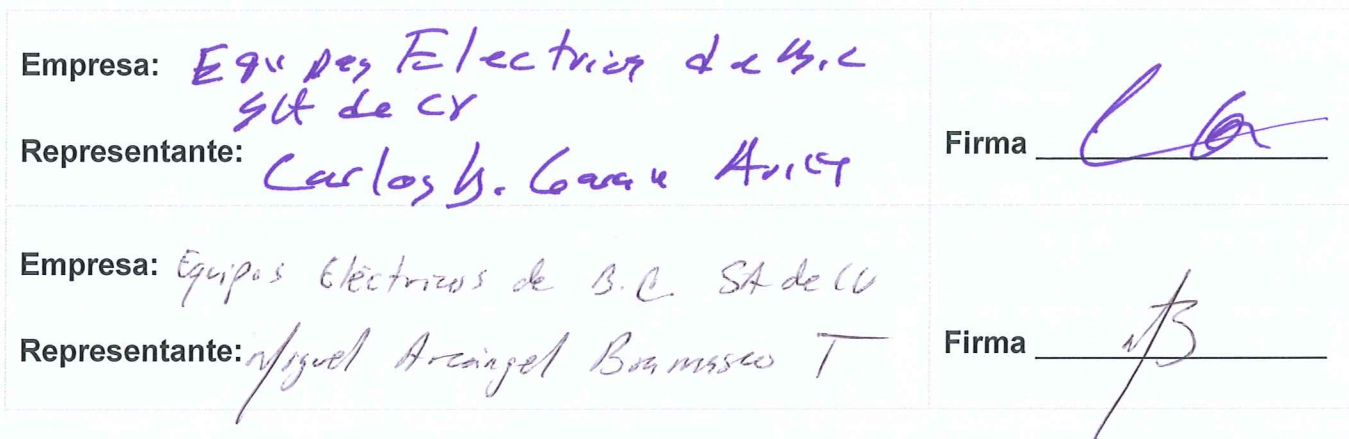 Empresa: Equipos Electricos de B.C
SA de CV
Representante: Carlos B. Avila
Firma
Empresa: Equipos Eléctricos de B.C. SA de CV
Representante: Miguel Arcángel T
Firma